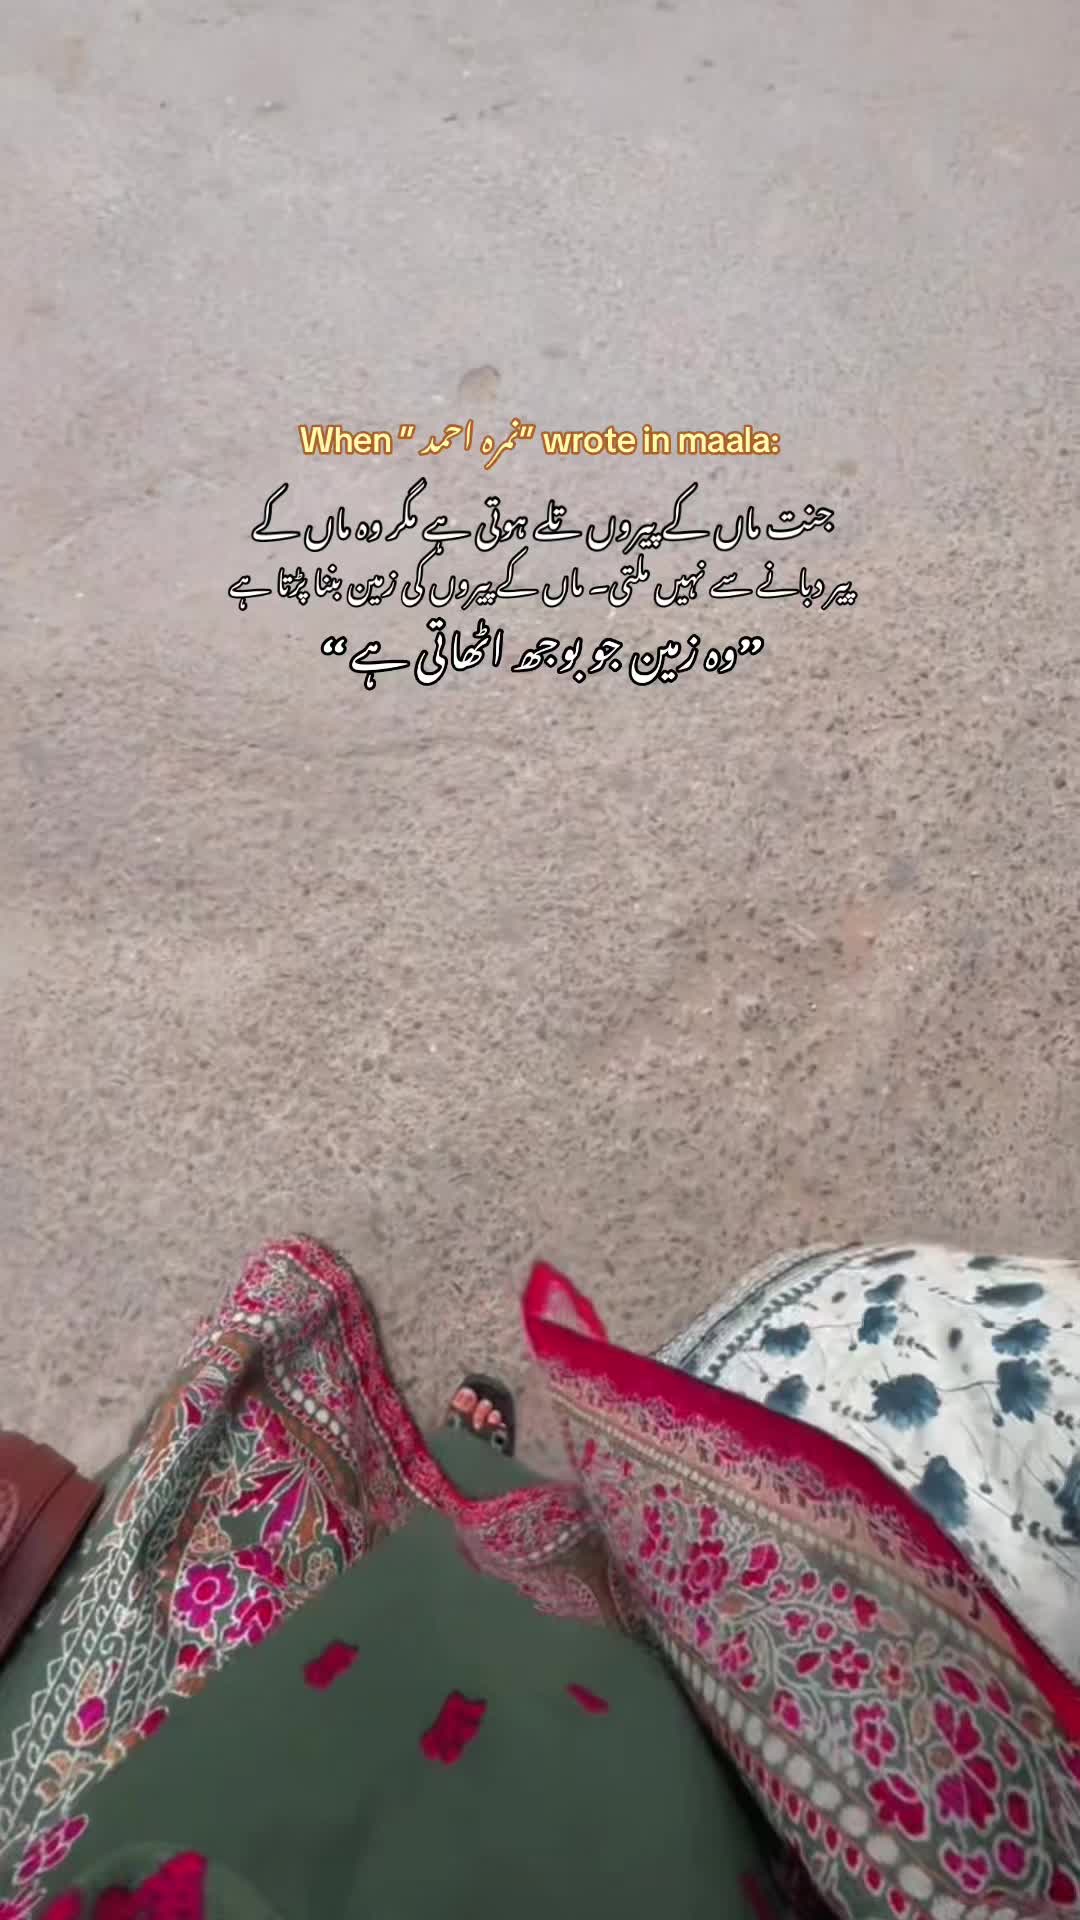 When "نمرہ احمد" wrote in maala:
جنت ماں کے پیروں تلے ہوتی ہے مگر وہ ماں کے
پیر دبانے سے نہیں ملتی۔ ماں کے پیروں کی زمین بننا پڑتا ہے
”وہ زمین جو بوجھ اٹھاتی ہے“